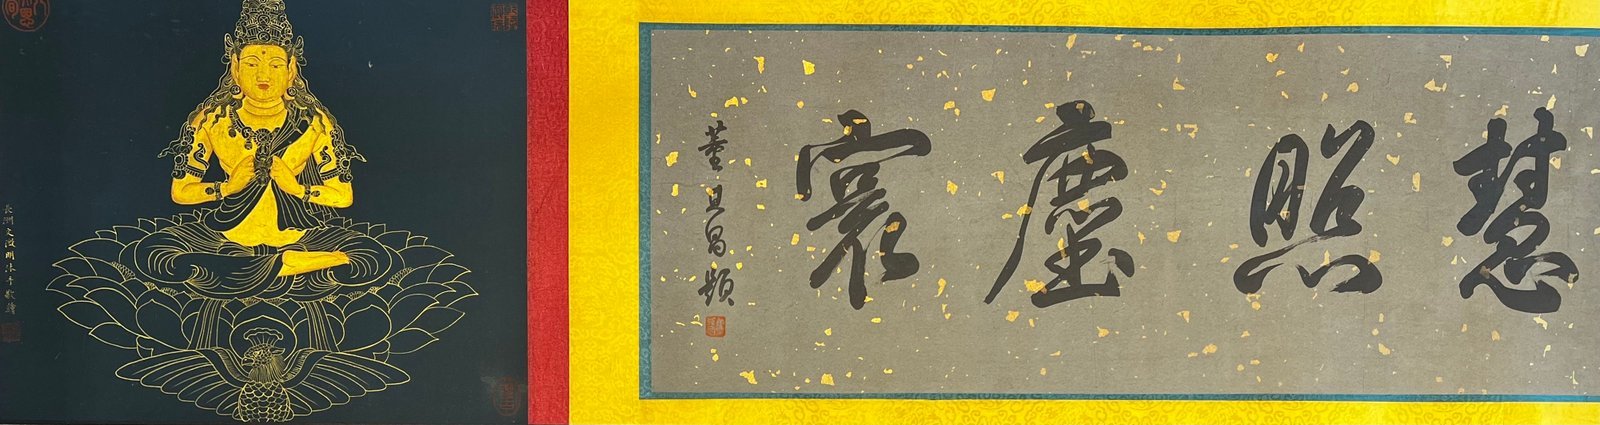 慧照塵寰
董其昌題
長洲文徵明沐手敬繪